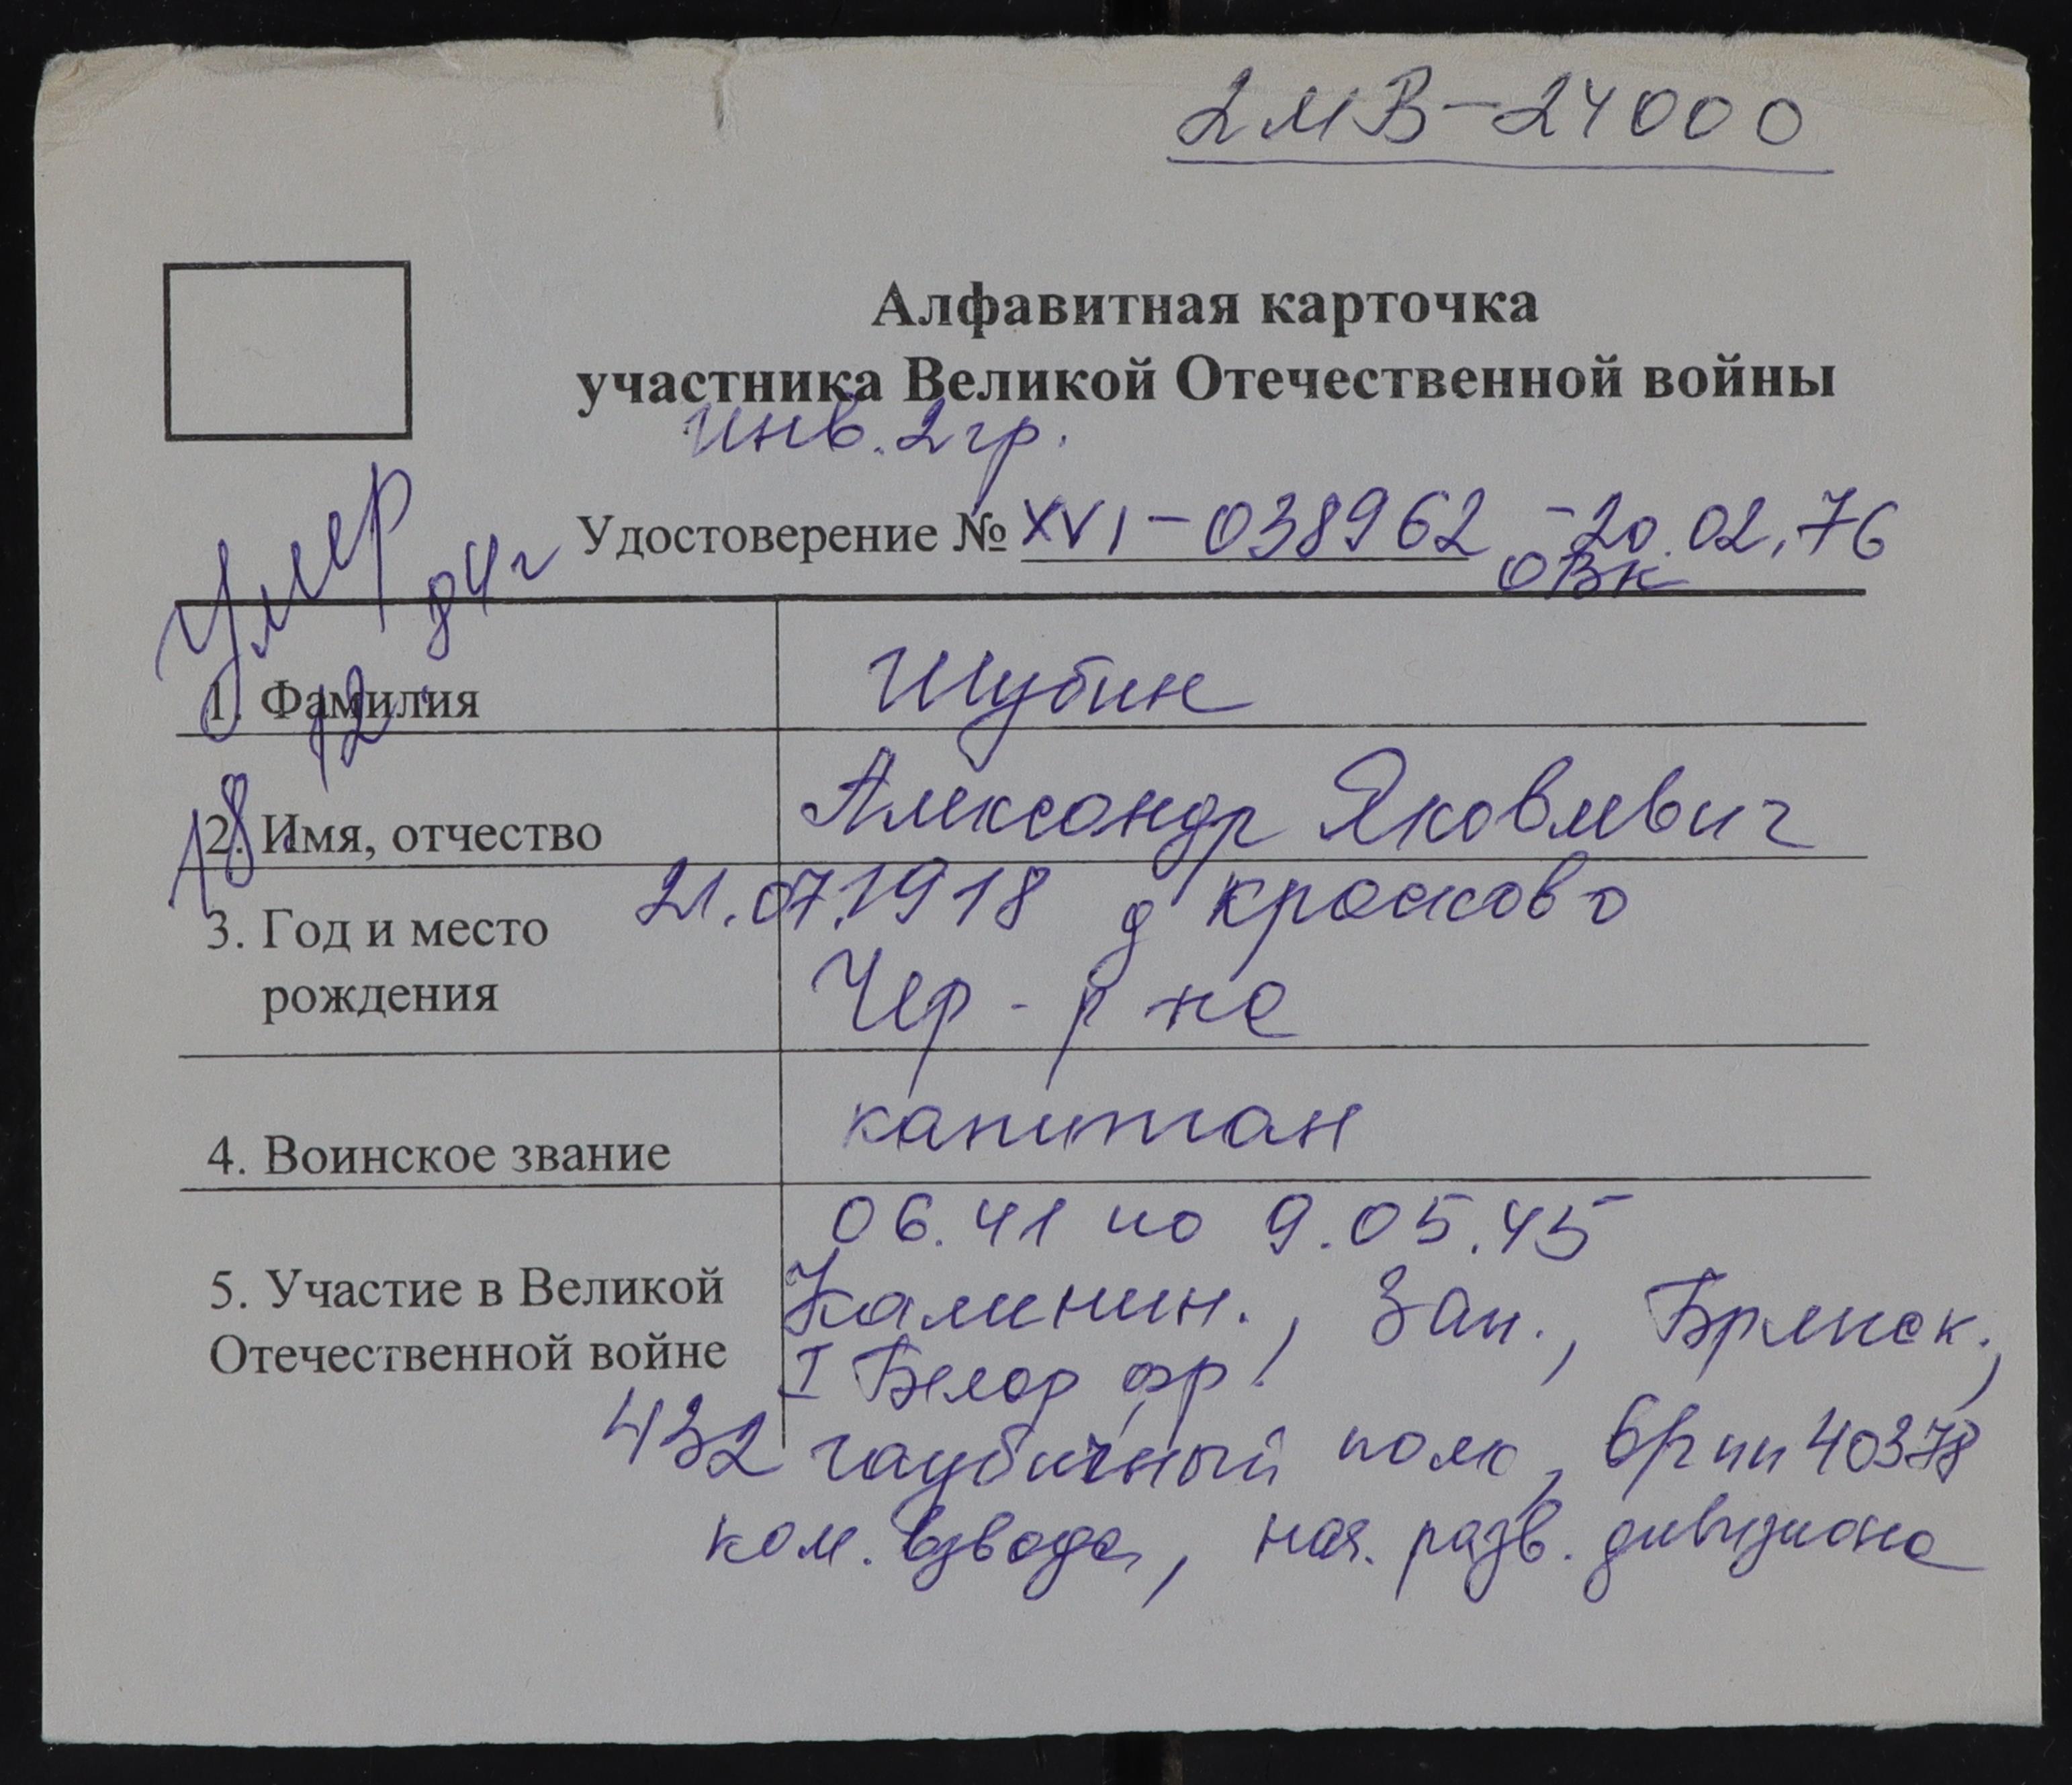 2МВ-24000
Алфавитная карточка
участника Великой Отечественной войны
инв. 2 гр.
Удостоверение № XVI-038962 -20.02.76
ОВК
Умер
18 12 84г
1. Фамилия Шубин
2. Имя, отчество Александр Яковлевич
3. Год и место 21.07.1918 д
рождения Чер - р не
4. Воинское звание капитан
06.41 по 9.05.45
5. Участие в Великой Калинин., Зап., Брянск.,
Отечественной войне I Белор фр.
432 гаубичный полк, в/ч пп 40378
ком. взвода, нач. разв. дивизиона